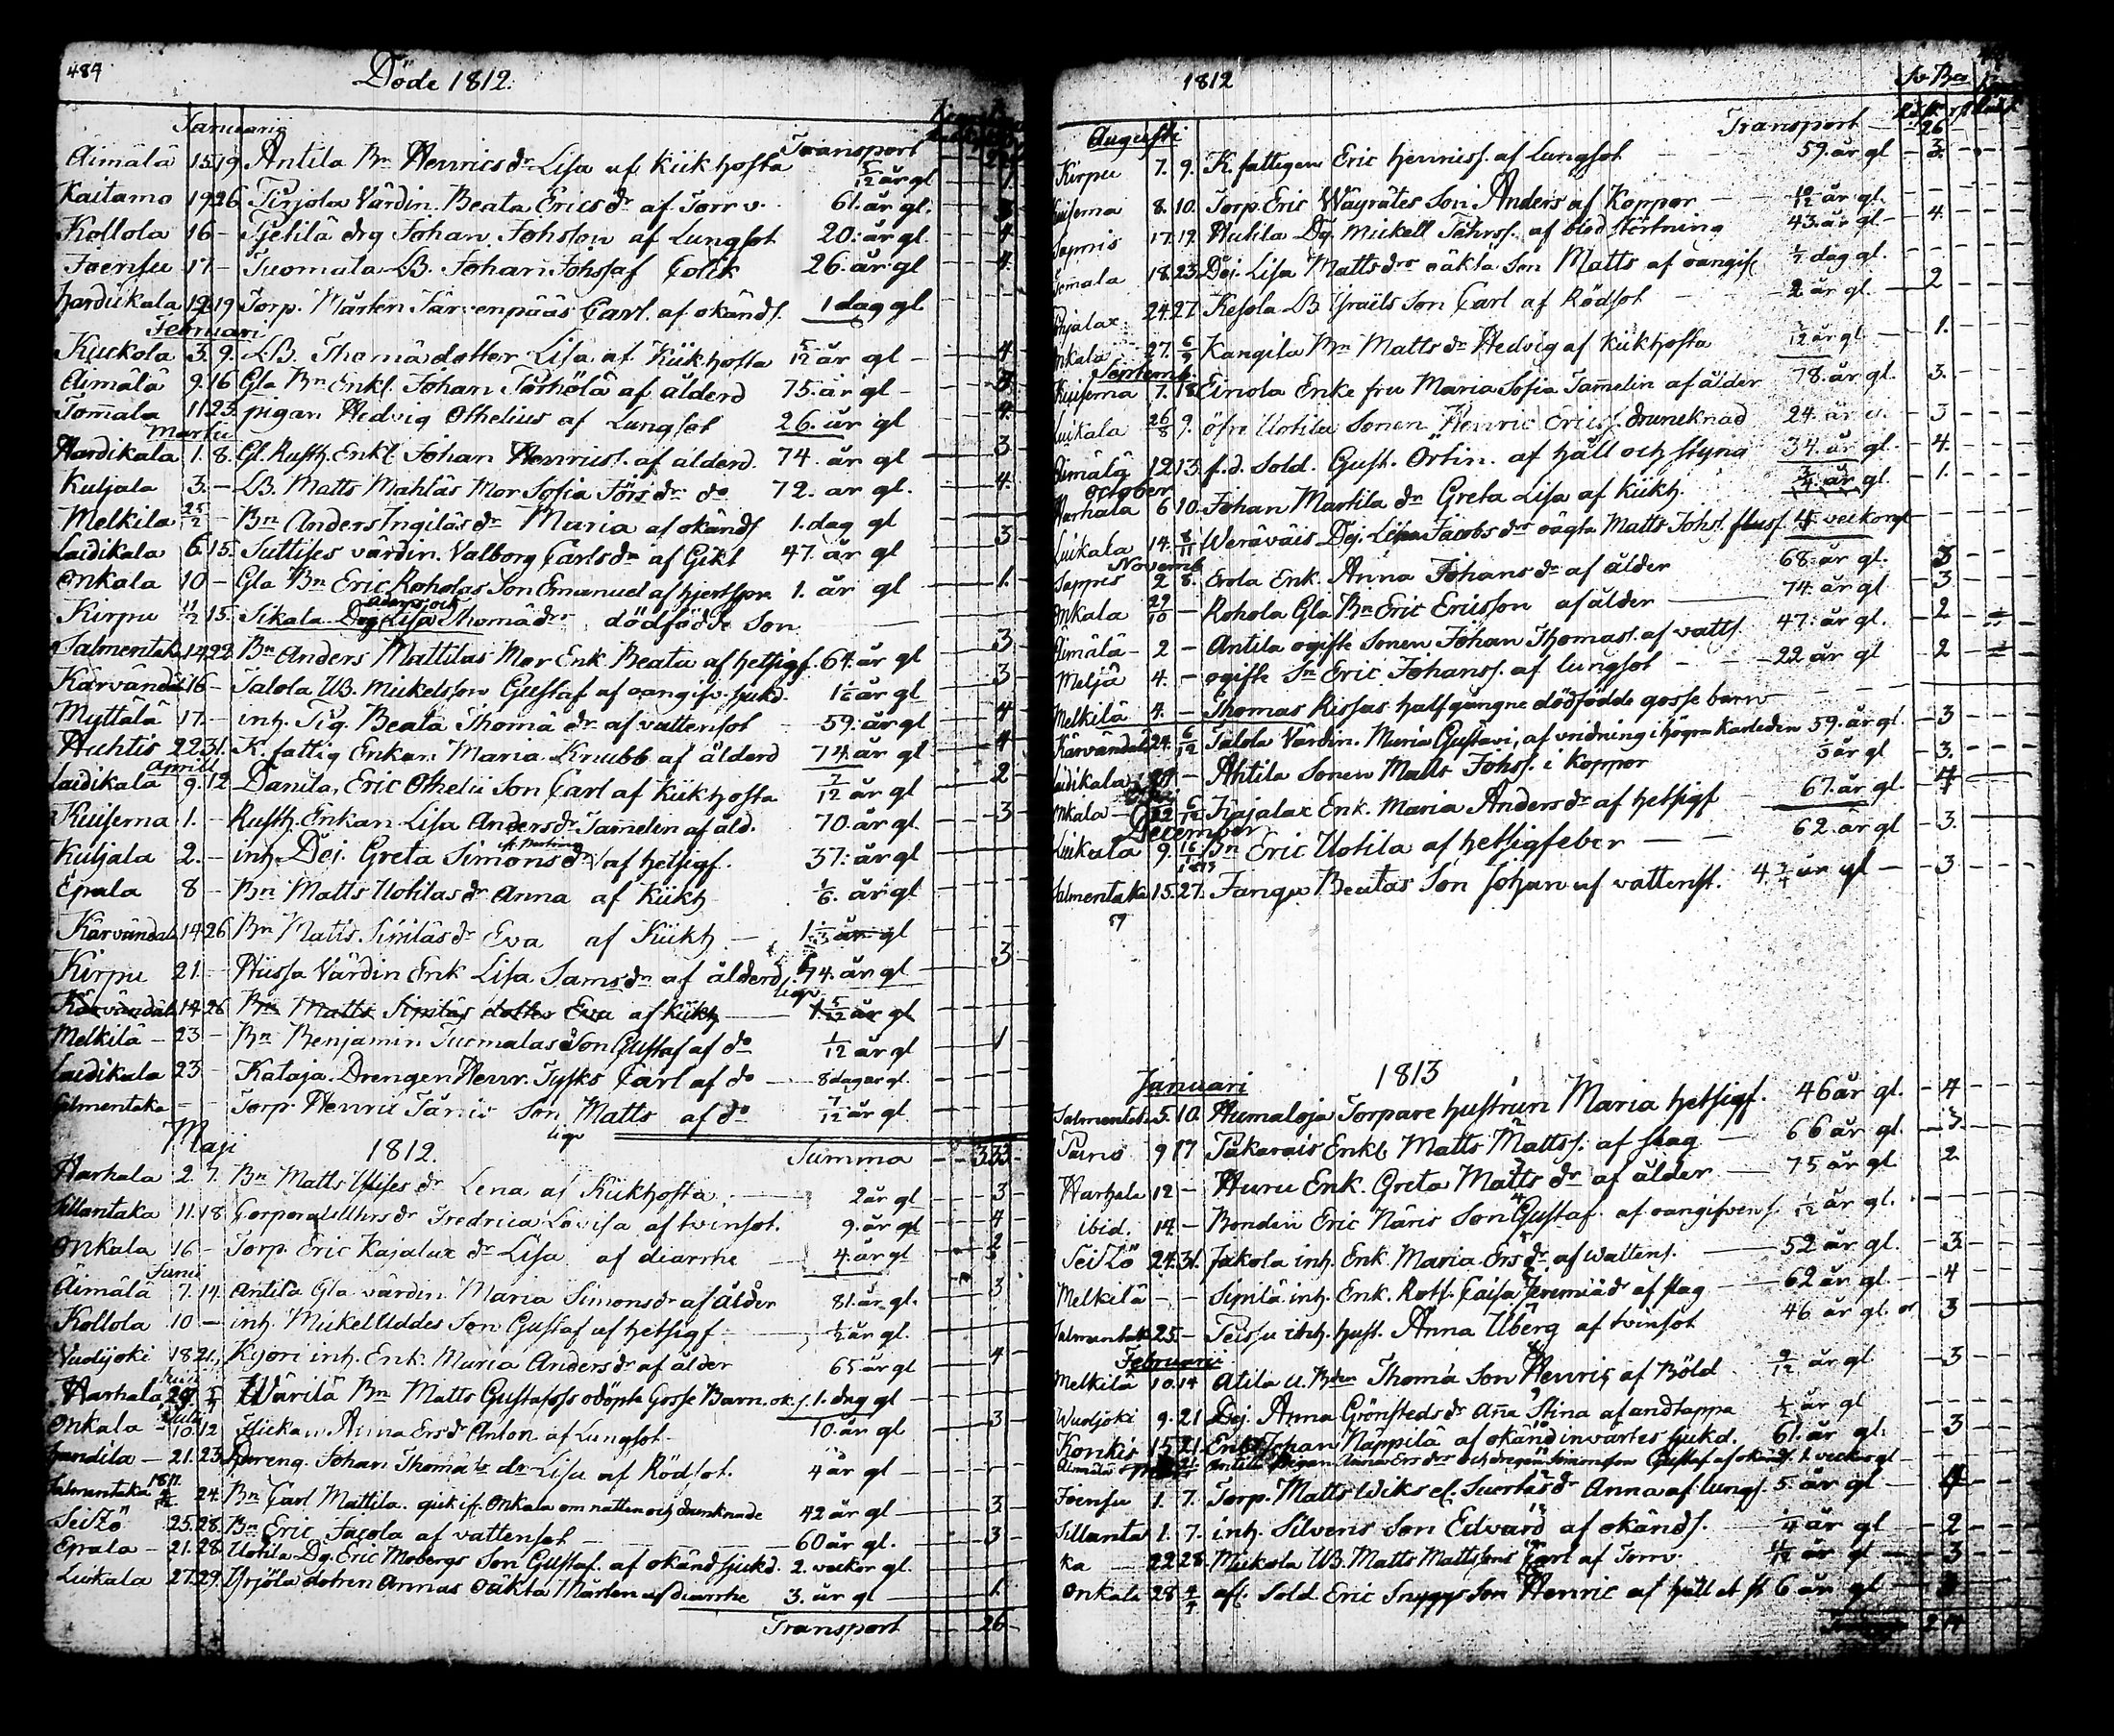 484
Döde 1812.
Januarii
Transport
Äimälä 15 19 Antila Bn Henricsdr Lisa af Kikhosta 5/12 år gl 1
Kaitamo 19 26 Pirjola Värdin. Beata Ericsdr af Torrv. 61. år gl. 3
Kollola 16 - Johan Johsson af Lungsot 20. år gl. 4
Joensu 17 - Tuomala LB. Johan Johss af Colik 26. år gl 4.
Hardikala 12 19 Torp. Mårten Järvenpääs Carl. af okänds. 1 dag gl
Februari
Kuckola 3. 9. LB. Thomä dotter Lisa af Kikhosta 5/12 år gl - 4
Äimälä 9. 16 Gla Bn Enkl. Johan Törhölä af ålderd 75. år gl - 3.
Tom̄ala 11 23. pigan Hedvig Othelius af Lungsot 26. år gl 4.
Martii
Hardikala 1. 8. Gl. Rusth. Enkl. Johan Henricss. af ålderd. 74. år gl 3
Kuljala 3. - LB. Matts Mahlas Mor Sofia Jörsdr do 72. år gl. 4.
Melkila 25/2 - Bn Anders Ingilas dr Maria af okänds 1. dag gl
Laidikala 6. 15. Suttises värdin. Valborg Carlsdr af Gikt 47. år gl 3
Onkala 10 - Gla Bn Eric Roholas Son Emanuel af hjertspr 1. år gl 1.
Kirpu 11/2 15. Sikala Lisa Thomädr dödfödde Son
Salmentaka 14 22 Bn Anders Mattilas Mor Enk Beata af hetsigf. 64. år gl 3
Kärvändälä 16 - Talola UB. Mickelsson Gustaf af oangifv. sjukd. 1/6 år gl 3
Myttälä 17. - inh. Pig. Beata Thomä dr af vattensot 59. år gl 4
Huhtis 22 31. K. fattig Enkan Maria Knubb af ålderd 74. år gl 4
Aprill
Laidikala 9. 12 Danila, Eric Othelii Son Carl af Kikhosta 7/12 år gl 2
Kuiserna 1. - Rusth. Enkan Lisa Andersdr Tam̄elen af åld. 70. år gl. 3
Kuljala 2. - inh. Dej. Greta Simonsdr af hetsigf. 37. år gl
Epala 8 - Bn Matts Uotilas dr Anna af Kikh 1/6. år gl
Kärvändälä 14 26 Bn Matts Similäs dr Eva af Kikh. - 1 gl
Kirpu 21. - Hussa Värdin Enk Lisa Samsdr af ålderd. 74. år gl 3
Kärvändälä 14 26 Bn Matts Similäs dotter Eva af Kikh 1 5/12 år gl
Melkilä - 23 - Bn Benjamin Tuomalas Son Gustaf af do 1/12 år gl 1
Laidikala 23 - Kataja. Drengen Henr. Tysks Carl af do 8 dagar gl.
Salmentaka - - Torp. Henric Tänis Son Matts af do 7/12 år gl
Maji 1812. Summa 333
Harhala 2. 7. Bn Matts Ulises dr Lena af Kikhosta 2 år gl 3
Sillantaka 11. 18. Corporal Uhrs dr Fredrica Lovisa af tvinsot. 9. år gl 4
Onkala 16 - Torp. Eric Kajalax dr Lisa af diarrhe 4. år gl
Junii
Äimälä 7. 14. Antila Gla värdin Maria Simonsdr af ålder 81. år gl. 3
Kollola 10 - inh. Mickel Uddes Son Gustaf af hetsigf 1/2 år gl.
Vuolijoki 18 21. Kyöri inh. Enk. Maria Andersdr af ålder 65 år gl 4
Harhala 29. Wärilä Bn Matts Gustafsss odöpte Gosse Barn. ok. s. 1. dag gl
Julii
Onkala - 10 12 Flickan Anna Ersdr Anton af Lungsot 10. år gl 3
Handila - 21. 23 Dreng. Johan Thomä dr Lisa af Rödsot. 4 år gl
Salmentaka 1811. 24. Bn Carl Mattila. gick if. Onkala om natten och drunknade 42 år gl 3.
Seitzö 25. 28. Bn Eric Jacola af vattensot 60 år gl. 3
Epala - 21. 28 Uotila Dg. Eric Mobergs Son Gustaf. af okänd sjukd. 2. veckor gl.
Luikala 27. 29. Yrjölä dotren Annas oäkta Mårten af diarrhe 3. år gl 1.
Transport 26
1812 Sv Bco
Augusti Transport 26
Kirpu 7. 9. K. fattigen Eric Henricss. af lungsot 59. år gl 3.
Kuiserna 8. 10. Torp. Eric Wäyrätes Son Anders af Koppor 10/12 år gl.
Sappris 17. 19. Huhtila Dg. Mickell Jöhnss. af blodstörtning 43. år gl 4.
Tom̄ala 18. 23. Dej. Lisa Mattsdrs oäkta Son Matts af oangif 1/2 dag gl.
24 27 Kesola LB Israëls Son Carl af Rödsot 2 år gl. 2
Onkala 27. 6/9 Kangila Bn Matts dr Hedvig af Kikhosta 1/12 år gl. 1.
Septemb.
Kuiserna 7. 18 Eirola Enke fru Maria Sofia Tam̄elin af ålder 78. år gl. 3.
Luikala 26/8 9. öfre Uotila Sonen Henric Ericss. druncknad 24. år 3
Äimälä 12 13 f.d. Sold. Gust. Örtin. af håll och styng 34. år gl. 4.
October
Harhala 6 10. Johan Martila dr Greta Lisa af Kikh. 3/4. år gl. 1.
Luikala 14. 8/11 Weräväis Dej. Lisa Jacobsdrs oägta Matts Johs. 4 veckor gl
Novemb
Seppris 2 8. Erola Enk. Anna Johansdr af ålder 68. år gl. 3
Onkala 29/10 - Rohola Gla Bn Eric Ericsson af ålder 74. år gl 3
Äimälä - 2 - Antila ogifte Sonen Johan Thomass. af vatts. 47. år gl. 2
Meljä 4. - ogifte Sn Eric Johanss. af lungsot 22 år gl 2
Melkilä 4. - Thomas Rissas halfgångne dödfödde gosse barn
Kärvändälä 24. 6/12 Talola Värdin. Maria Gustavi, af vridning i högra Karleden 59. år gl. 3
Laidikala - Ahtila Sonen Matts Johss. i Koppor 3 år gl 3.
Onkala - 22 6/12 Kajalax Enk. Maria Andersdr af hetsigf 67. år gl. 4
December
Luikala 9. Bn Eric Uotila af hetsigfeber 62. år gl 3.
Salmentaka 15. 27. Fangen Beatas Son Johan af vattenst. 4 3/4 år gl 3
1813
Januari
Salmentaka 5. 10. Humaloja Torpare hustrun Maria hetsigf. 46 år gl. 4
Pauno 9 17 Pakarais Enkl Matts Mattss. af slag 66 år gl. 3.
Harhala 12 - Huru Enk. Greta Matts dr af ålder 75 år gl 2
ibid. 14. - Bonden Eric Näris Son Gustaf af oangifven s. 1/12 år gl.
Seitzö 24. 31. Jakola inh. Enk. Maria Ersdr af wattens. 52 år gl. 3.
Melkilä - - Simila inh. Enk. Rotf. Caisa Jeremiädr af slag 62 år gl 4
Salmentaka 25. - Teissu inh. hust. Anna Uberg af tvinsot 46 år gl. 3
Februari
Melkilä 10. 14 Atila U. Bden Thomä Son Henric af Böld 9/12 år gl 3
Wuolijoki 9. 21 Dej. Anna Grönsteds dr An̄a Stina af andtäppa 1/2 år gl
Konkis 15 21. Enkl Johan Näppilä af okänd invärtes sjukd. 61. år gl. 3
Äimälä Antila Pigan Annas Ersdrs och drengen Simonsson Gustaf af okänds. 2 veckor gl
Joensu 1. 7. Torp. Matts Wiks el. Suertas dr Anna af lungs. 5. år gl 4
Sillanta 1. 7. inh. Silvens Son Edvard af okänds. 1/4 år gl 2
ka 22 28. Mickola UB. Matts Mattssons Carl af Torrv. 11/12 år gl 3
Onkala 28 4/4 afs. Sold. Eric Snyggs Son Henric af håll et st 6 år gl 3